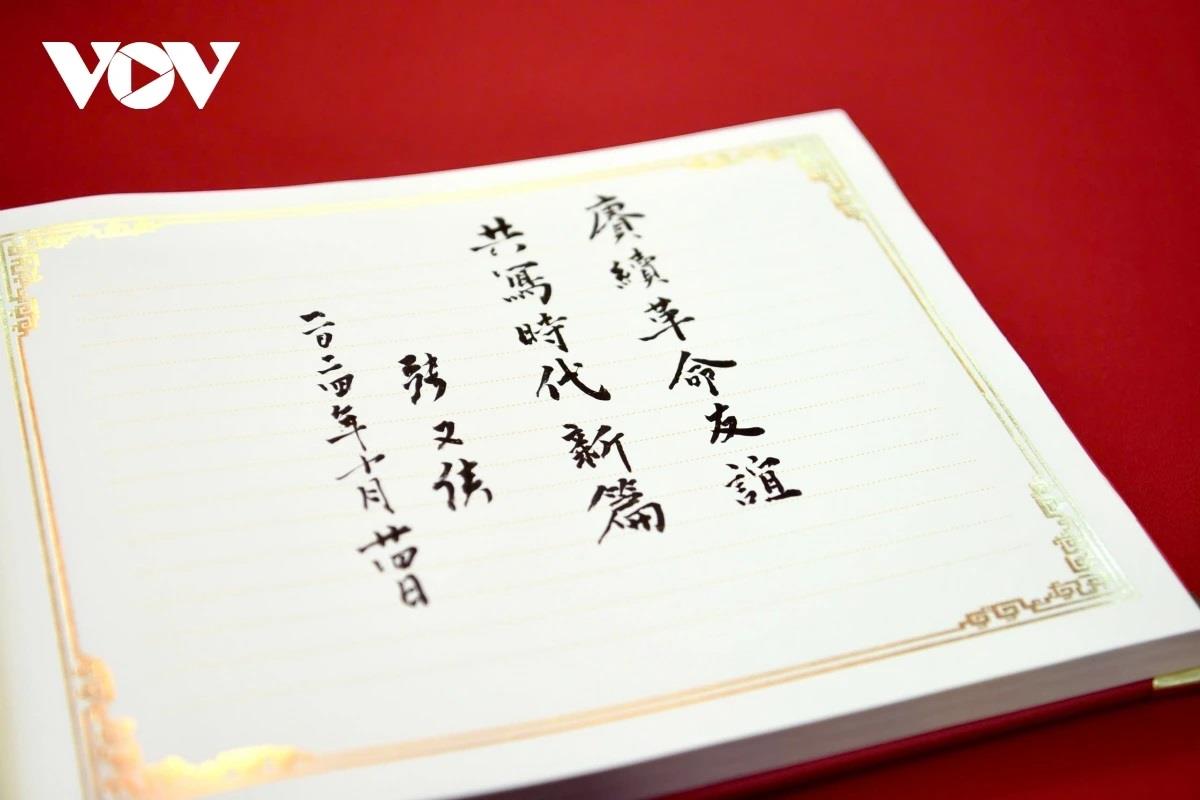 VOV
賡續革命友誼
共寫時代新篇
張又俠
二〇二四年十月廿四日